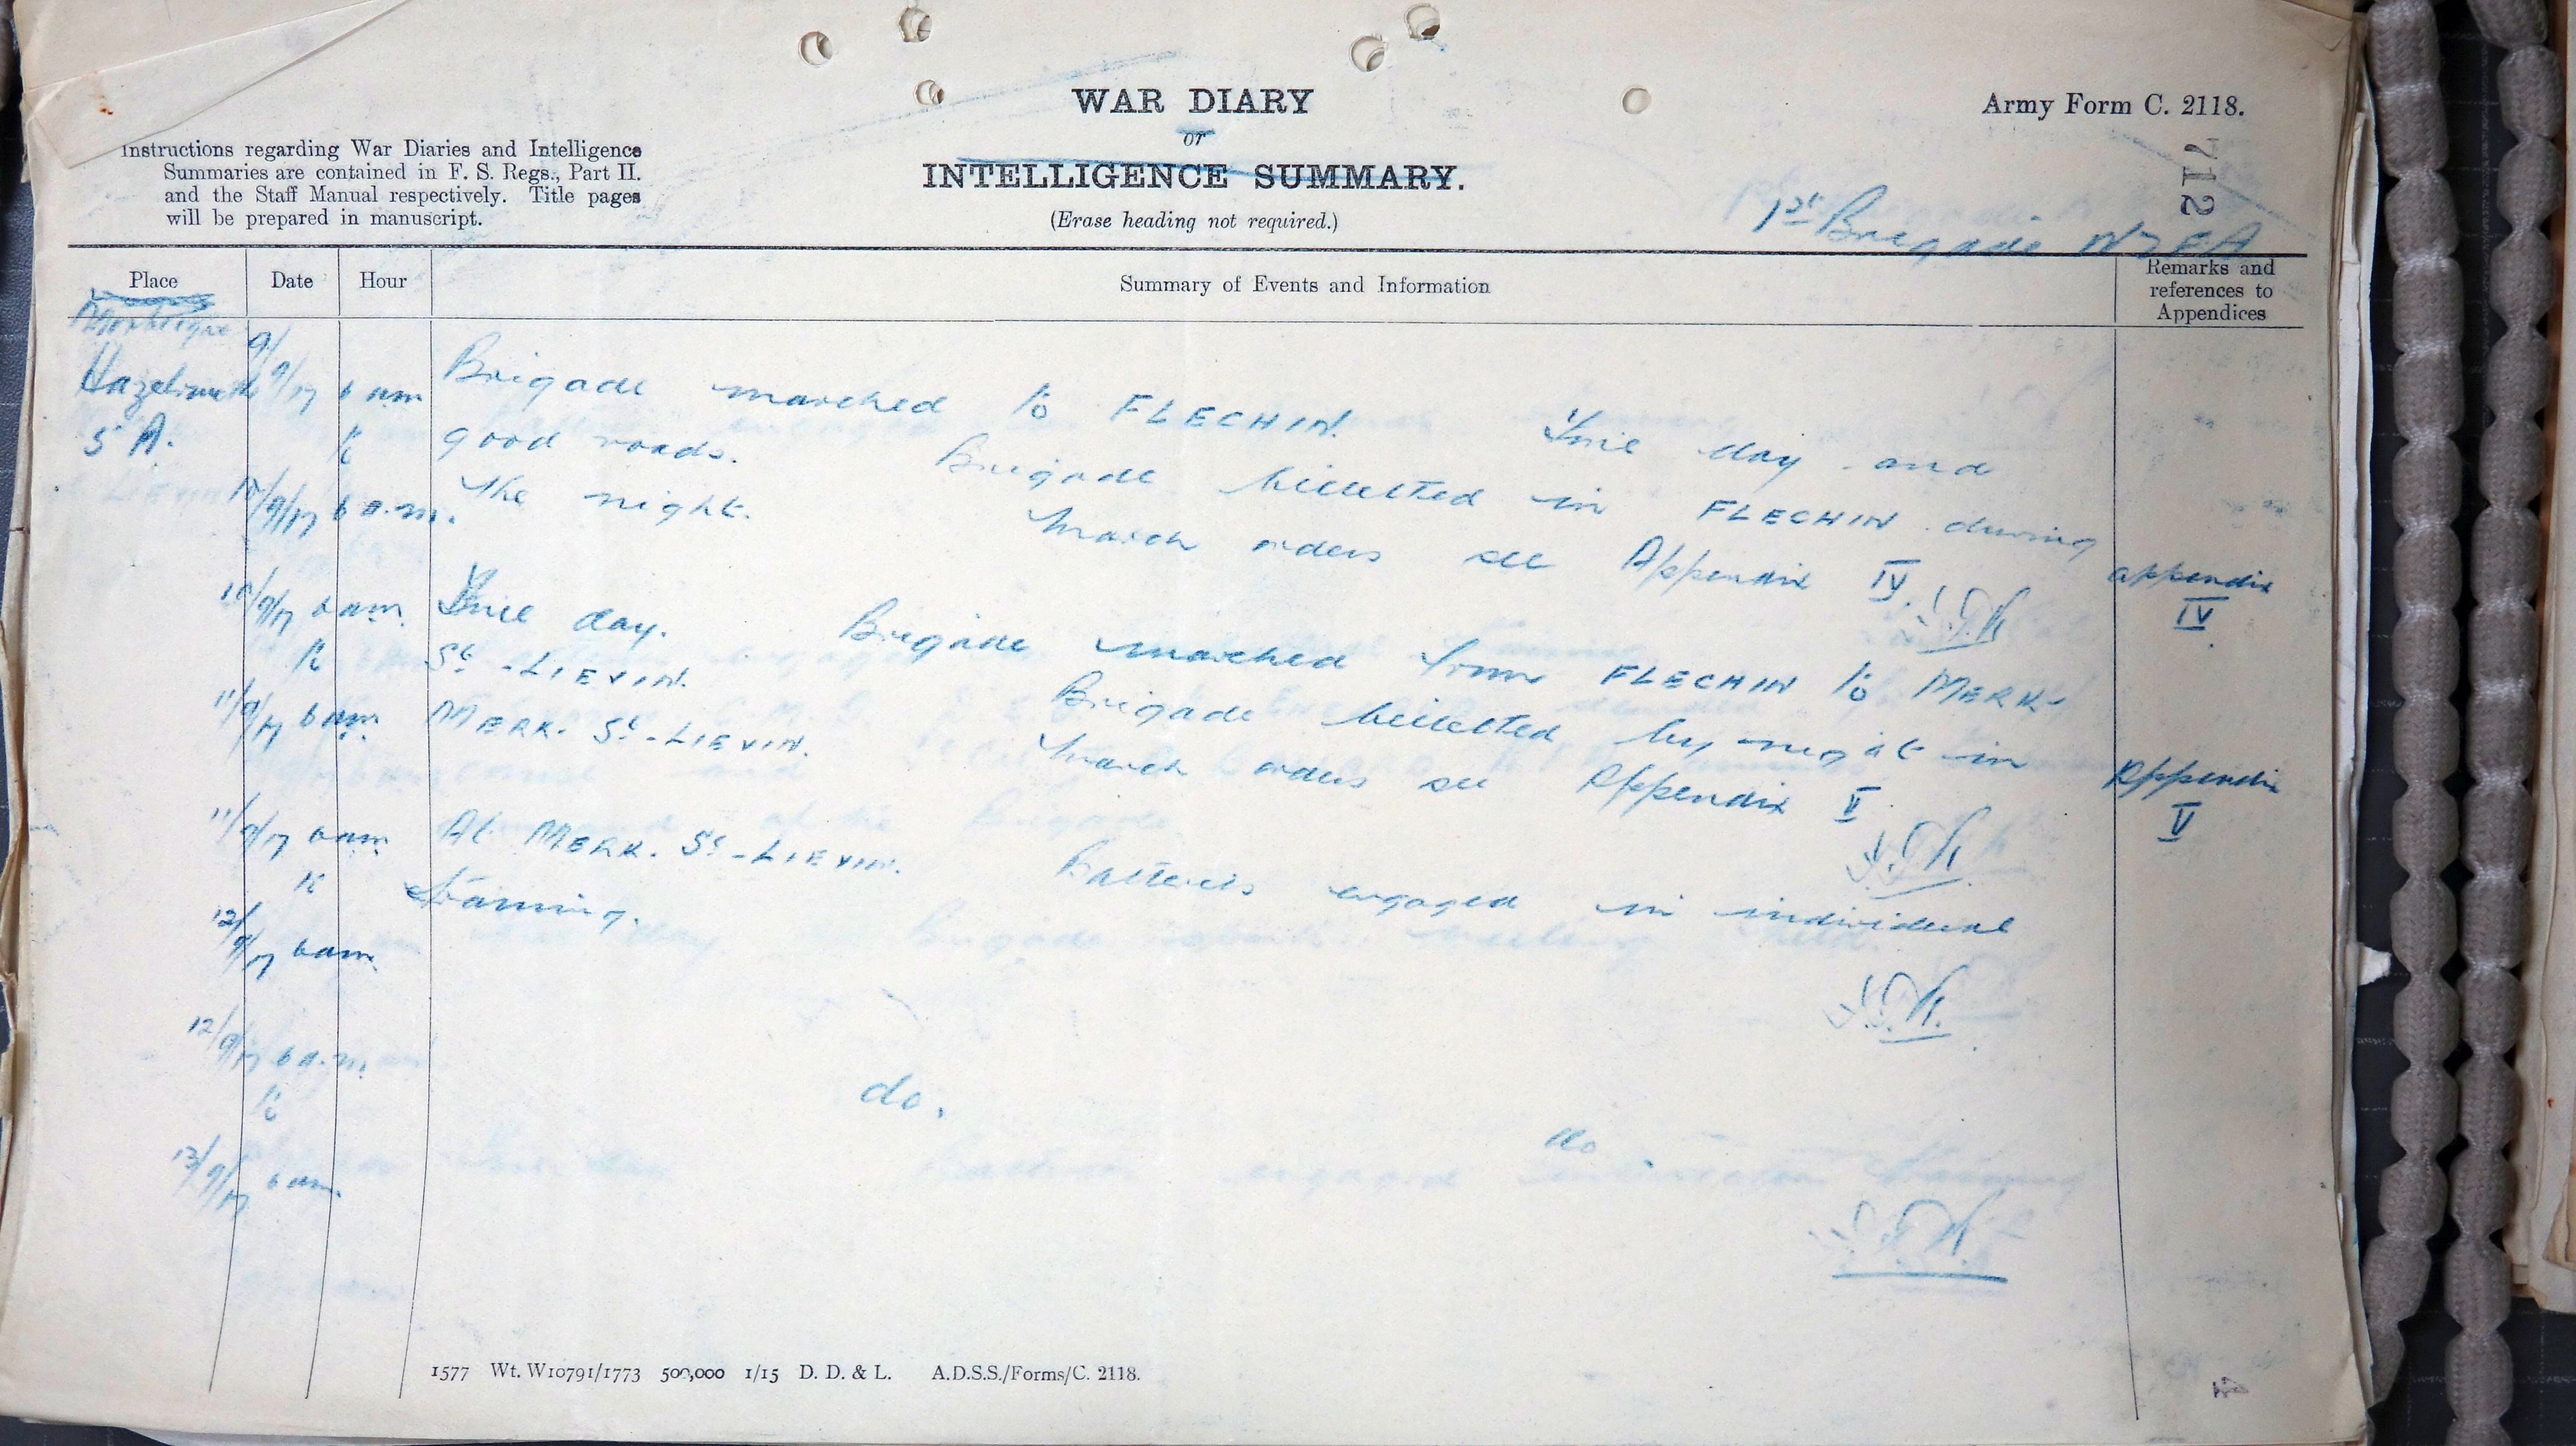 WAR DIARY
or
INTELLIGENCE SUMMARY.
(Erase heading not required.)
Army Form C. 2118.
Instructions regarding War Diaries and Intelligence
Summaries are contained in F. S. Regs., Part II.
and the Staff Manual respectively. Title pages
will be prepared in manuscript.
1st Brigade NZFA
Place Date Hour Summary of Events and Information Remarks and references to Appendices
Hazebrouck 9/9/17 6 am Brigade marched to FLECHIN. Fine day and
5A. to good roads. Brigade billetted in FLECHIN during
10/9/17 6 a.m. the night. March orders see Appendix IV. appendix
IV
10/9/17 6 am. Fine day. Brigade marched from FLECHIN to MERK-
to St-LIEVIN. Brigade billetted by night in
11/9/17 6 am MERK-St-LIEVIN. March orders see Appendix V. Appendix
V
11/9/17 6am At MERK-St-LIEVIN. Batteries engaged in individual
to training.
12/9/17 6am.
12/9/17 6 a.m.
to do. do.
13/9/17 6 am.
1577 Wt. W10791/1773 500,000 1/15 D. D. & L. A.D.S.S./Forms/C. 2118.